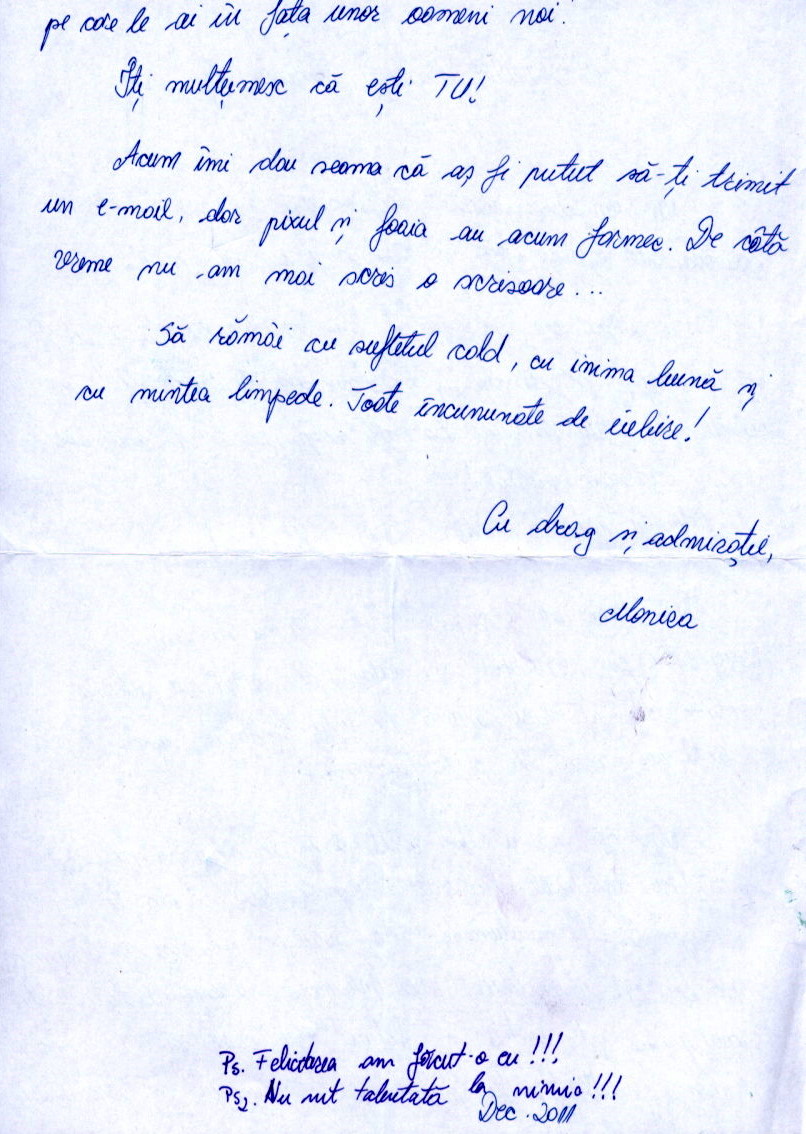 pe care le ai în fața unor oameni noi.
Îți mulțumesc că ești TU!
Acum îmi dau seama că aș fi putut să-ți trimit
un e-mail, dar pixul și foaia au acum farmec. De câtă
vreme nu am mai scris o scrisoare...
Să rămâi cu sufletul cald, cu inima bună și
cu mintea limpede. Toate încununate de iubire!
Cu drag și admirație,
Monica
Ps. Felicitarea am făcut-o eu!!!
Ps2. Nu sunt talentată la nimic!!!
Dec. 2011